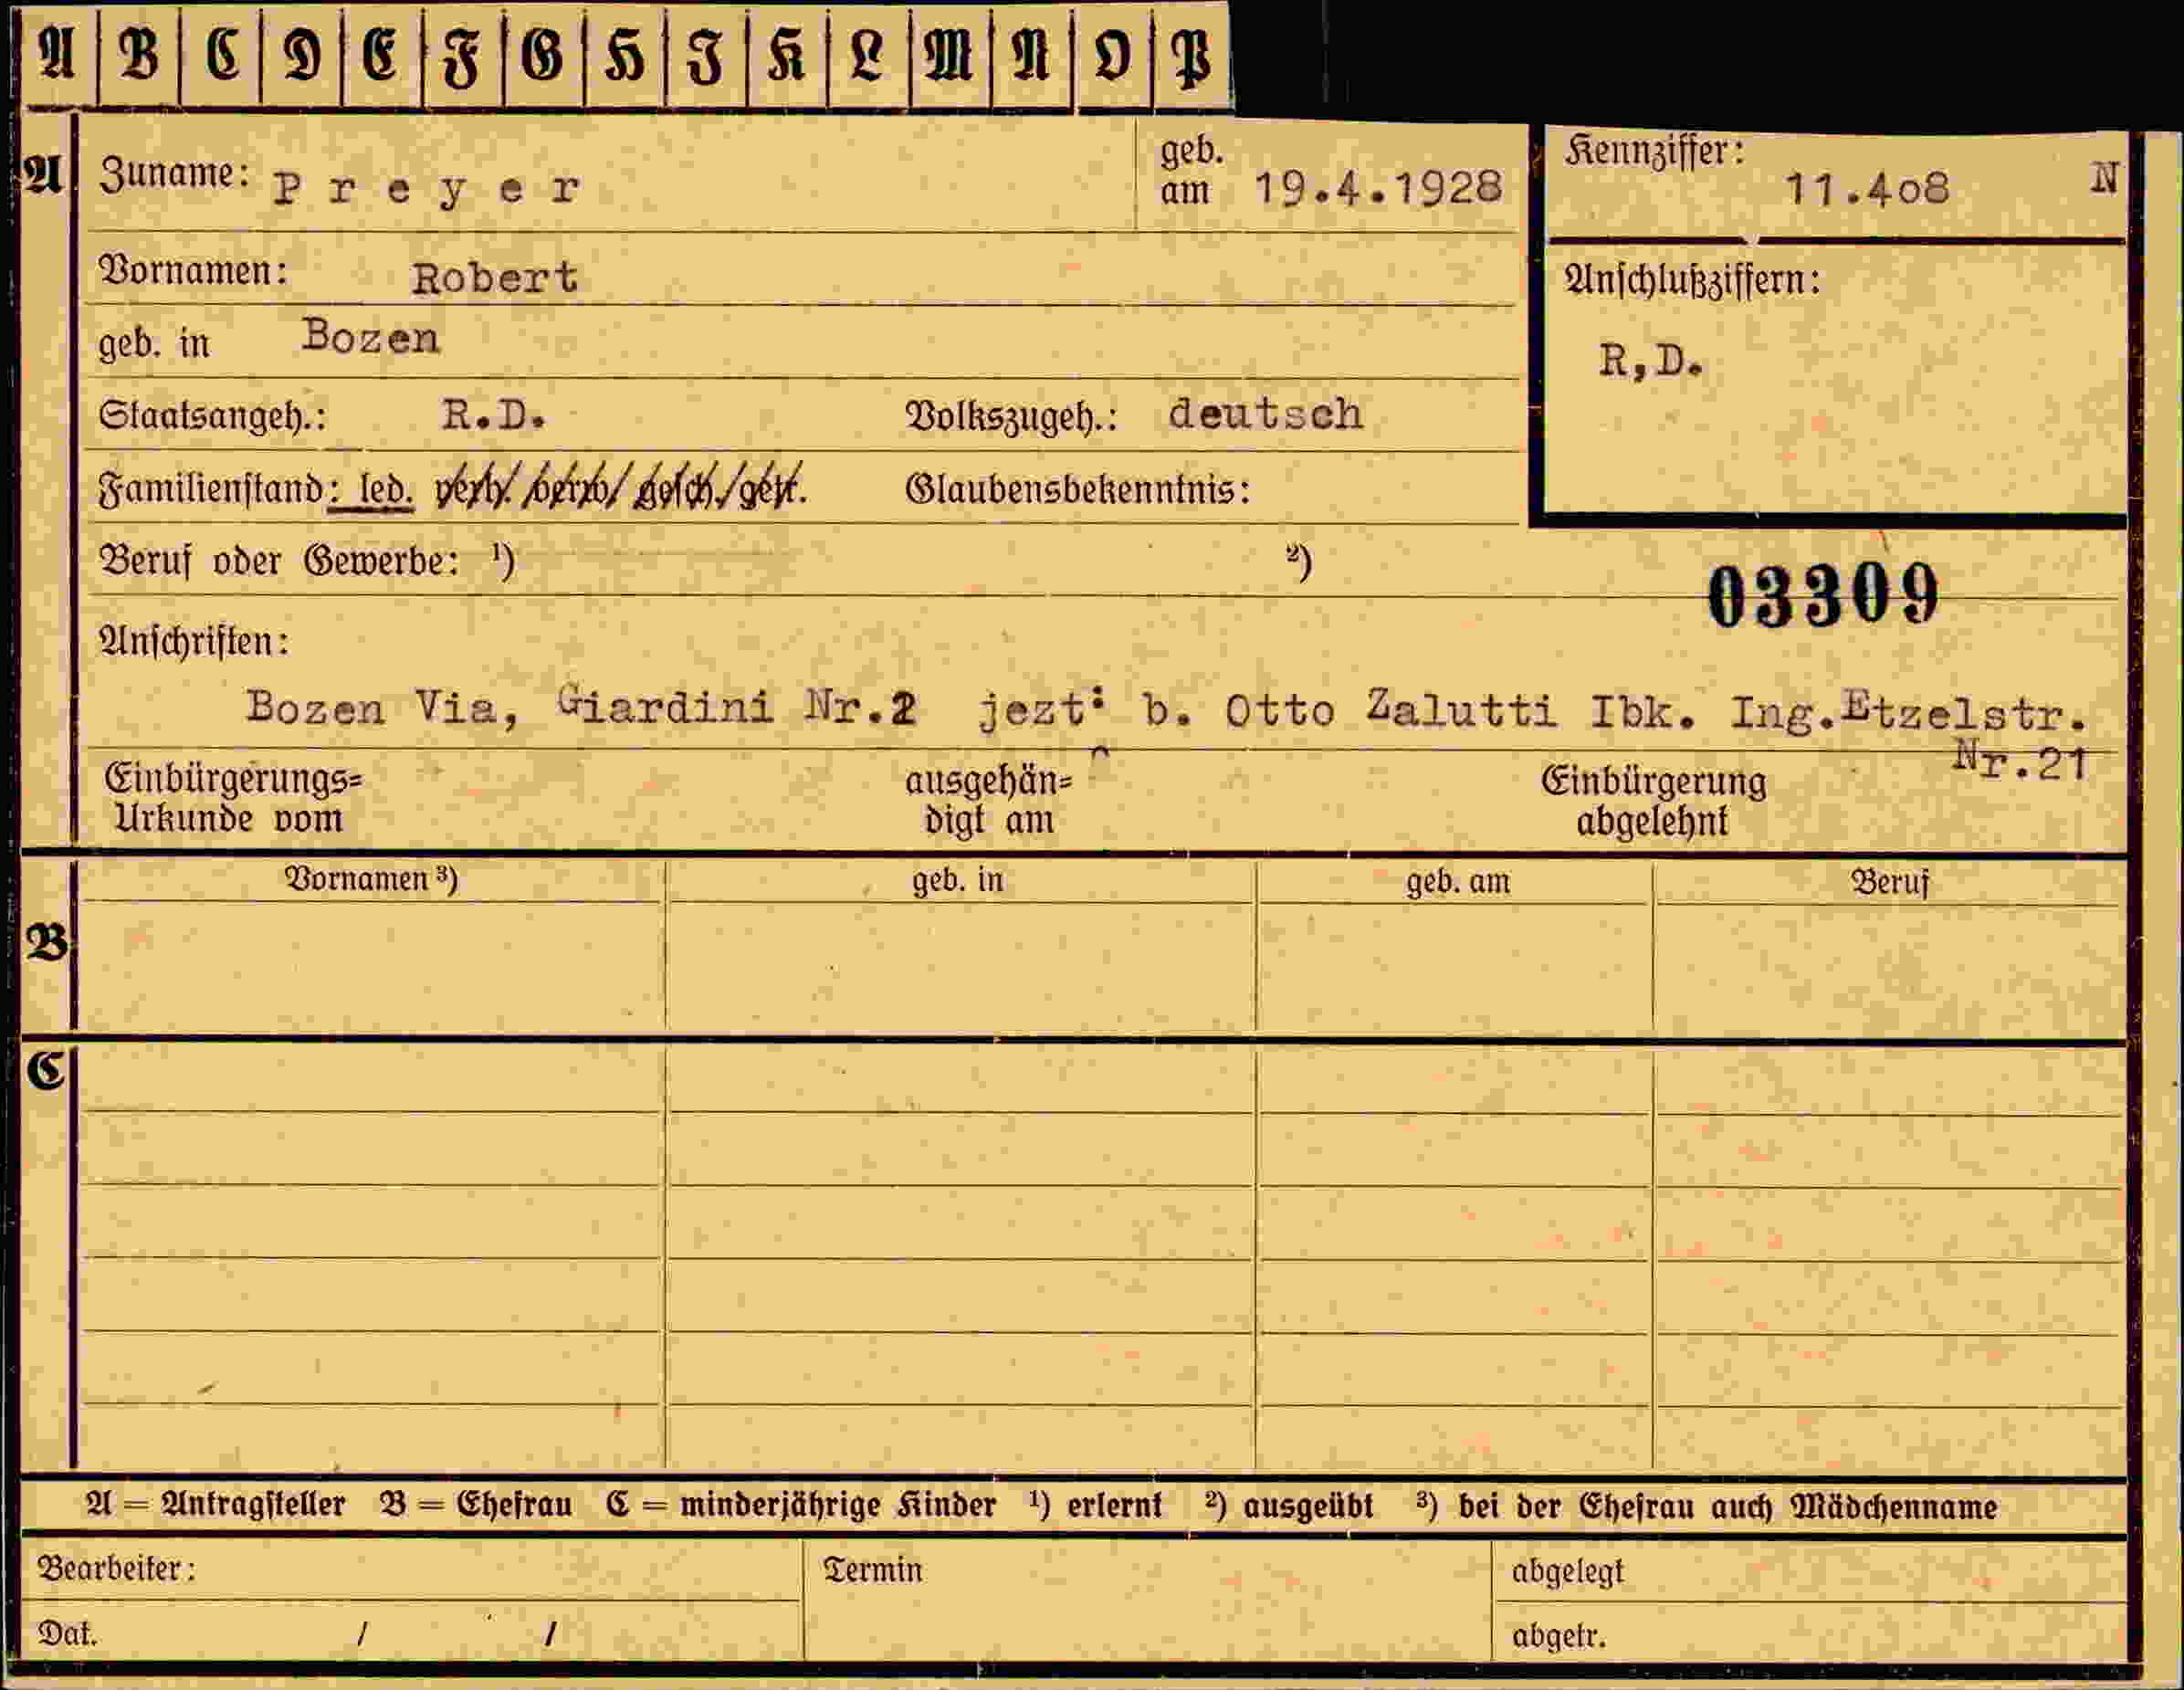 A B C D E F G H I K L M N O P
A Zuname: Preyer geb. am 19.4.1928 Kennziffer: 11.408 N
Vornamen: Robert Anschlußziffern:
geb. in Bozen R,D.
Staatsangeh.: R.D. Volkszugeh.: deutsch
Familienstand: led. verh. verw. gesch. getr. Glaubensbekenntnis:
Beruf oder Gewerbe: ¹) ²)
03309
Anschriften:
Bozen Via, Giardini Nr.2 jezt: b. Otto Zalutti Ibk. Ing.Etzelstr.
Nr.21
Einbürgerungs= ausgehän= Einbürgerung
Urkunde vom digt am abgelehnt
Vornamen ³) geb. in geb. am Beruf
B
C
A = Antragsteller B = Ehefrau C = minderjährige Kinder ¹) erlernt ²) ausgeübt ³) bei der Ehefrau auch Mädchenname
Bearbeiter: Termin abgelegt
Dat. / / abgetr.